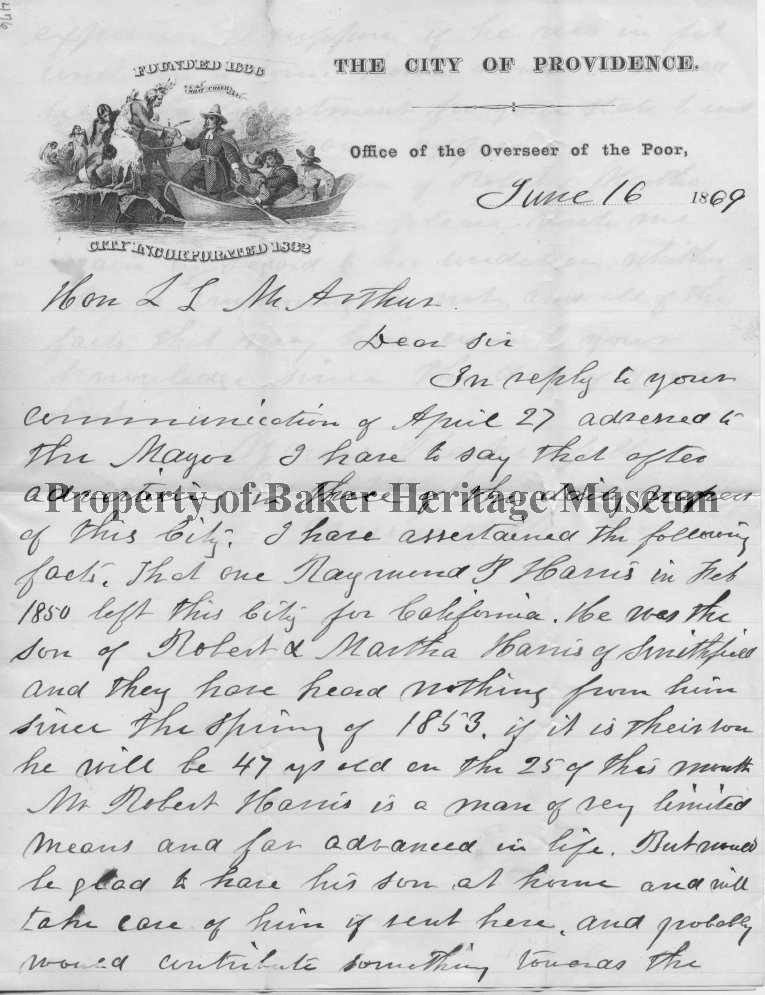 476
FOUNDED 1636
WHAT CHEER
THE CITY OF PROVIDENCE.
Office of the Overseer of the Poor,
June 16 1869
CITY INCORPORATED 1832
Hon L L McArthur.
Dear Sir
In reply to your
communication of April 27 adressed to
the Mayor I have to say that after
advertising in three of the daily papers
Property of Baker Heritage Museum
of this City. I have assertained the following
facts. That one Raymond P Harris in Feb
1850 left this City for California. He was the
son of Robert & Martha Harris of Smithfield
and they have heard nothing from him
since the spring of 1853. if it is their son
he will be 47 ys old on the 25 of this month
Mr Robert Harris is a man of very limited
means and far advanced in life. But would
be glad to have his son at home and will
take care of him if sent here, and probably
would contribute something towards the